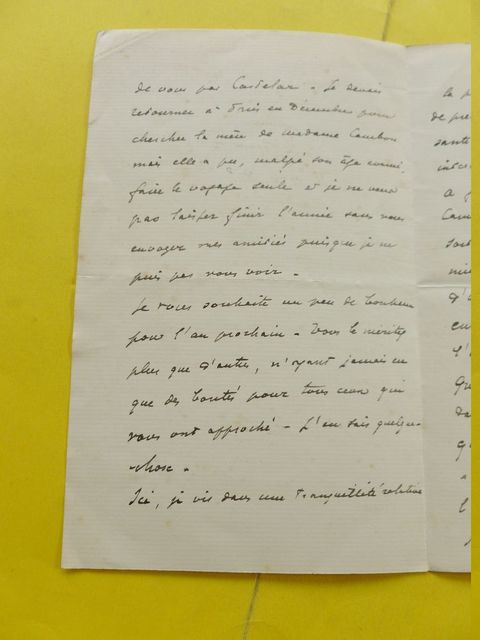 de vous par Castelar. Je devais
retourner à Paris en Décembre pour
chercher la mère de madame Cambon
mais elle a pu, malgré son âge avancé,
faire le voyage seule et je ne veux
pas laisser finir l'année sans vous
envoyer mes amitiés puisque je ne
puis pas vous voir.
Je vous souhaite un peu de bonheur
pour l'an prochain. Vous le méritez
plus que d'autres, n'ayant jamais eu
que des bontés pour tous ceux qui
vous ont approché. J'en sais quelque
chose.
Ici, je vis dans une tranquillité relative
la p
de pre
sante
A
Cam
d'a
en
l'
da
l